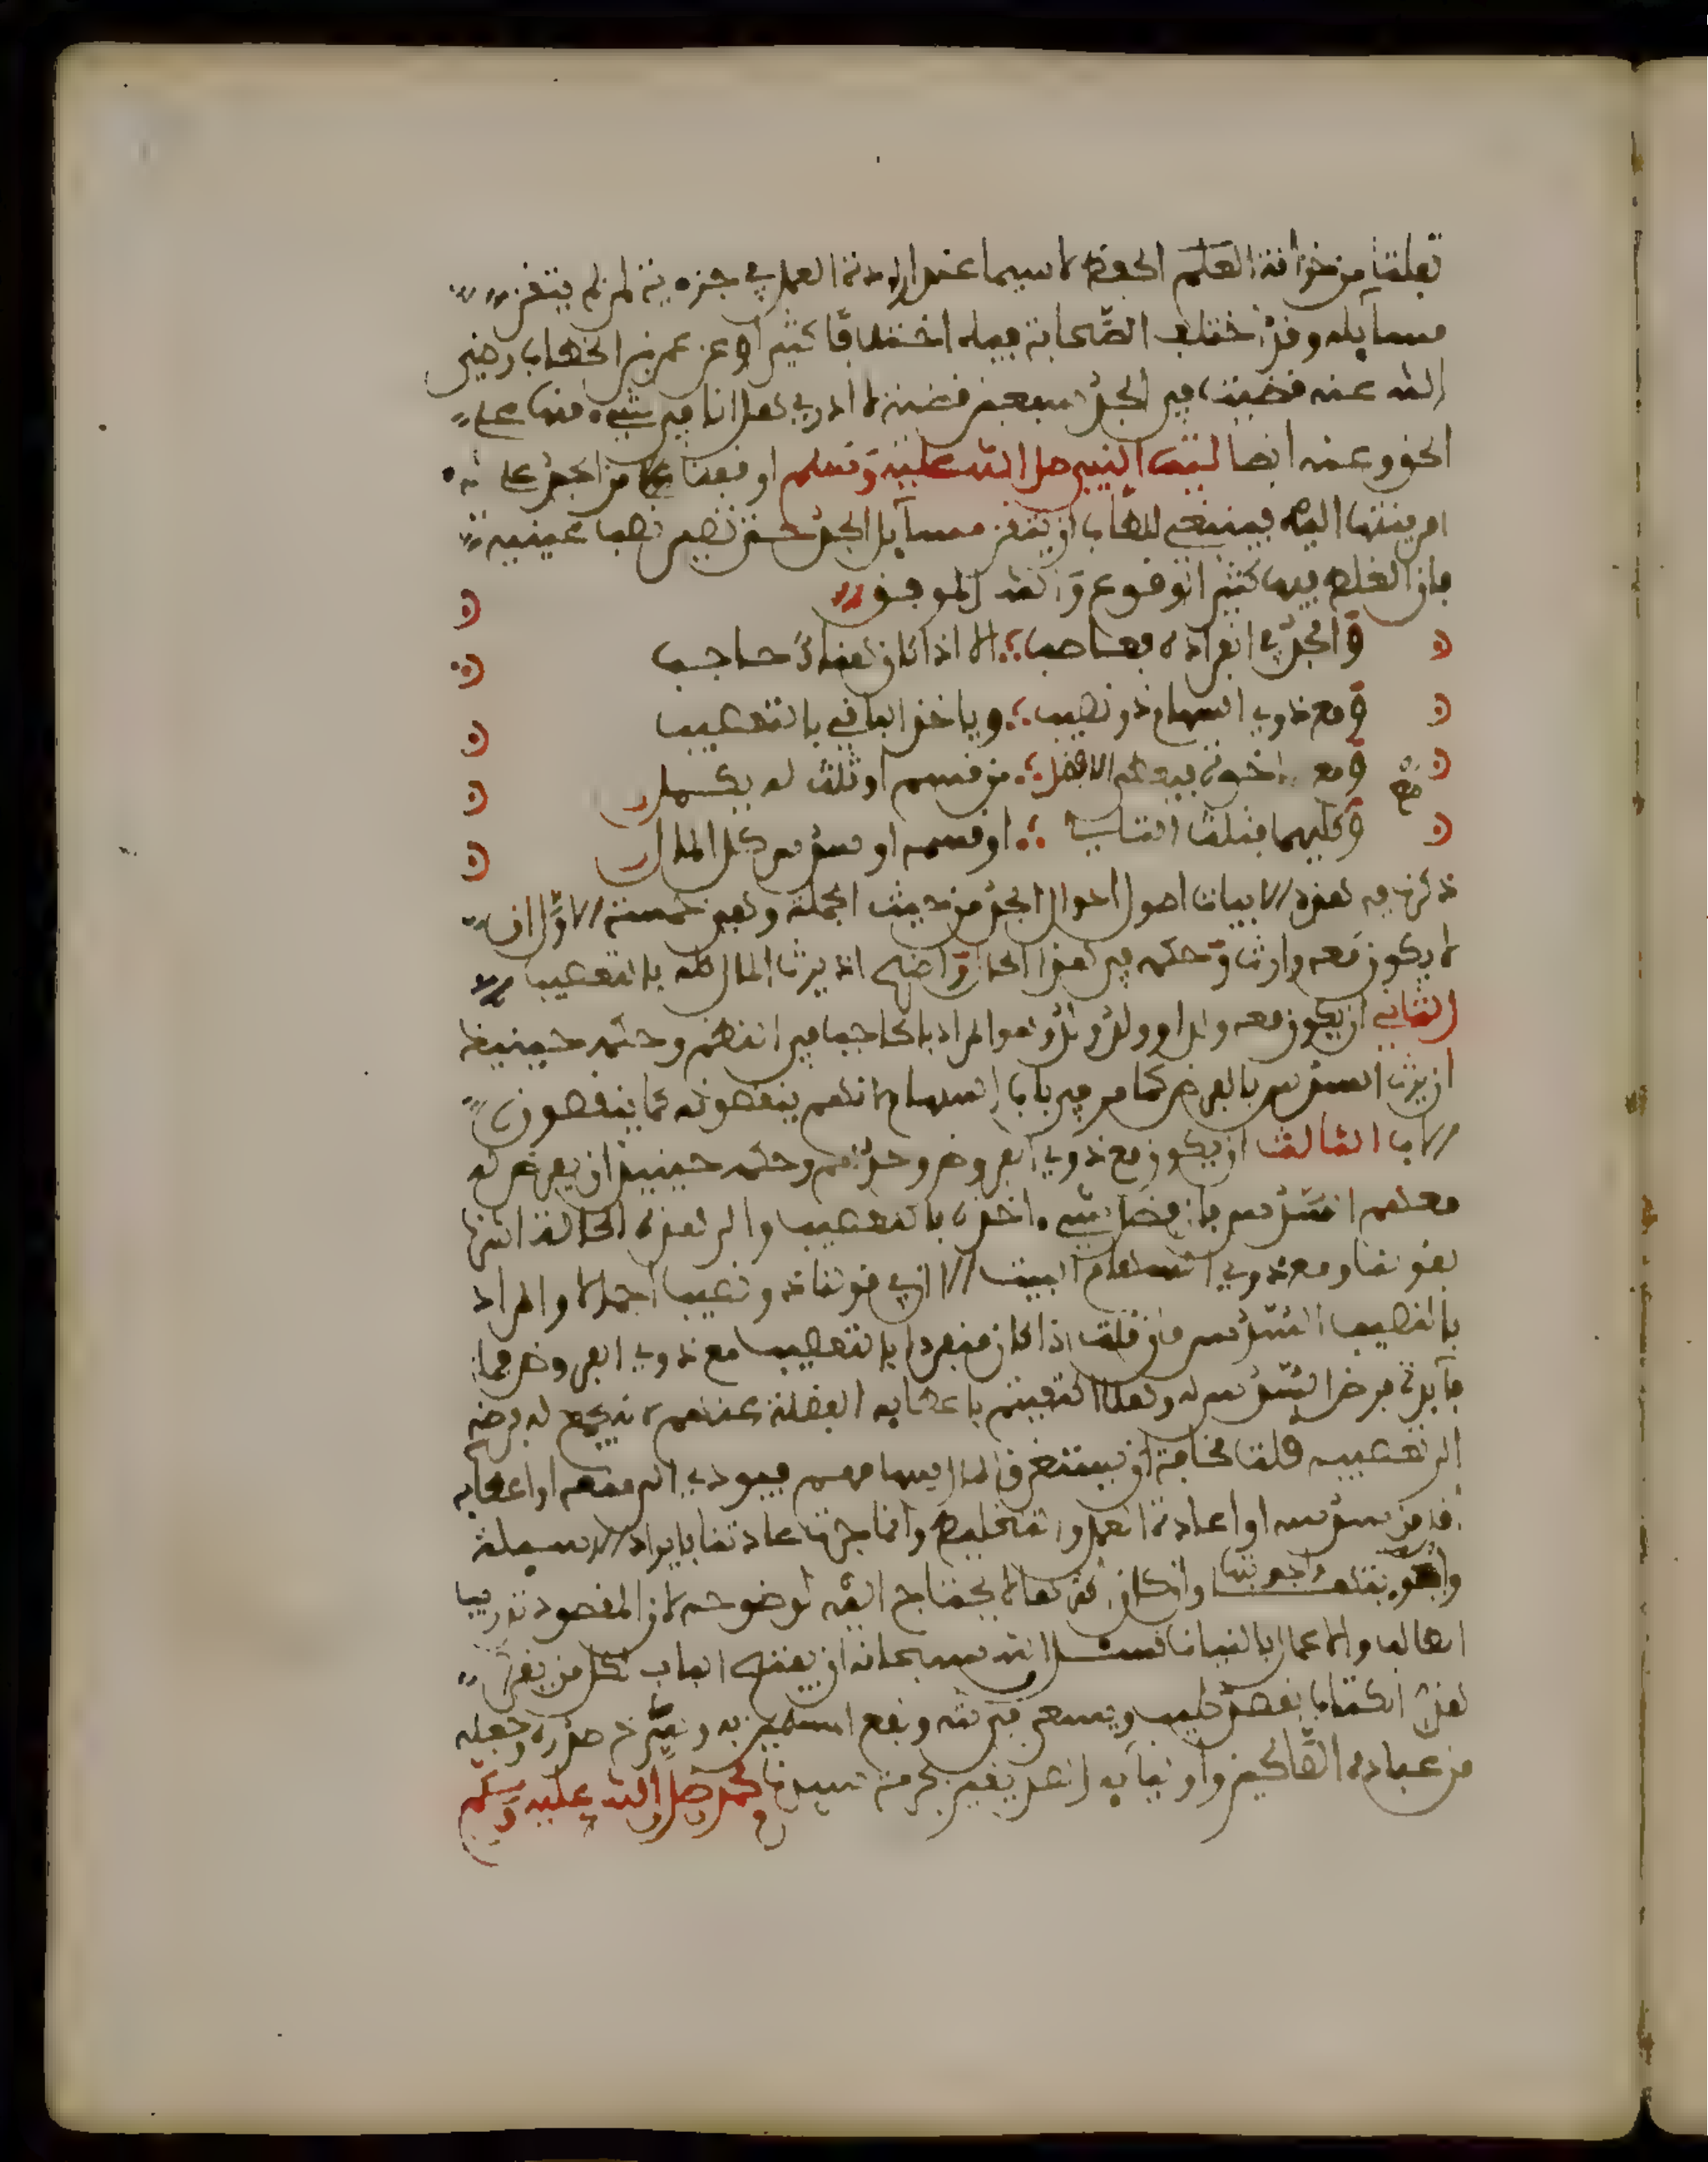 تفلتا من خزانة القلم الحفظ لاسيما عند ارادة العمل في جزءيته لمن لم يتقن
مسآيله وقد اختلف الصحابة فيه اختلافا كثيرا وعن عمر بن الخطاب رضي
الله عنه قضيت في الجد سبعين قضية لا ادري هل انا في شيء منها على
الحق وعنه ايضا ليت النبي صلى الله عليه وسلم اوقفنا من الجد على
امر ينتها اليه فينبغي للطالب ان يتقن مسآيل الجد حتى تصير نصب عينيه
فان الغلط فيها كثير الوقوع والله الموفق
والجد في انفراده بعاصب الا اذا كان هناك حاجب
ومع ذوي السهام ذو نصيب وياخذ الباقي بالتعصيب
ومع اخوة يبيح الافضل من قسم او ثلث له يكمل
وكليهما بثلث انتاسب او قسمه او سدس كل المال
ذكر في هذه الابيات اصول احوال الجد من حيث الجملة وهي خمسة الاول ان
لا يكون معه وارث وحكمه في هذا الحال واضح انه يرث المال كله بالتعصيب
الثاني ان يكون معه ولد او ولد ولد وهو المراد بالحاجب في النظم وحكمه حينيذ
ان يرث السدس بالفرض كما مر في باب السهام لانهم ينقصونه كما ينقصون
الاب الثالث ان يكون مع ذوي الفروض وحدهم وحكمه حينيذ ان يفرض له
معهم السدس فان فضل شيء اخذه بالتعصيب والى هذه الحالة اشرنا
بقولنا ومع ذوي السهام البيت الا ان في قولنا ذو نصيب اجمالا والمراد
بالنصيب السدس فان قلت اذا كان منفردا بالتعصيب مع ذوي الفروض فما
فآيدة فرض السدس له وهلا اكتفيتم باعطايه الفضلة عندهم لانه يجمع له فرضه
الى تعصيبه قلت مخافة ان يستغرق المال سهامهم فيودي الى منعه او اعطايه
اقل من سدس او اعادة العمل والتخليط وانما جرت عادتنا بايراد الاسيلة
واجوبتها وان كان بعضها لا يحتاج اليه لوضوحه لان المقصود تدريب
الطالب والاعمال بالنيات نسئل الله سبحانه ان يفتح الباب لكل من يقرا
هذا الكتاب بقصد طيب ويسعى في بثه ونفع المسلمين به وشرح صدره وجعله
من عباده الصالحين واوليآيه العارفين بحرمة سيدنا محمد صلى الله عليه وسلم